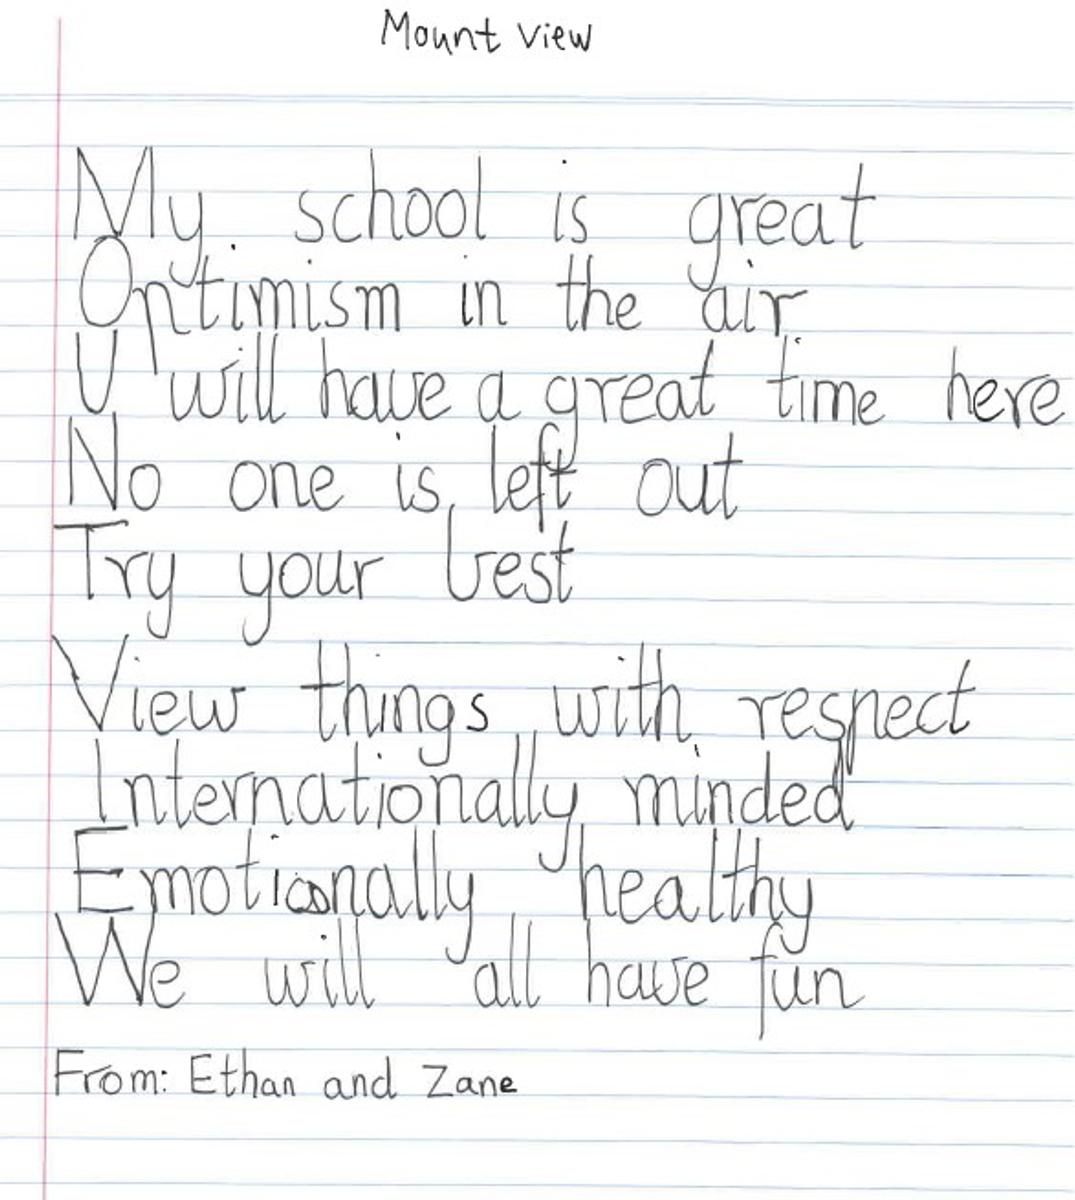 Mount View
My school is great
Optimism in the air
U will have a great time here
No one is left out
Try your best
View things with respect
Internationally minded
Emotionally healthy
We will all have fun
From: Ethan and Zane